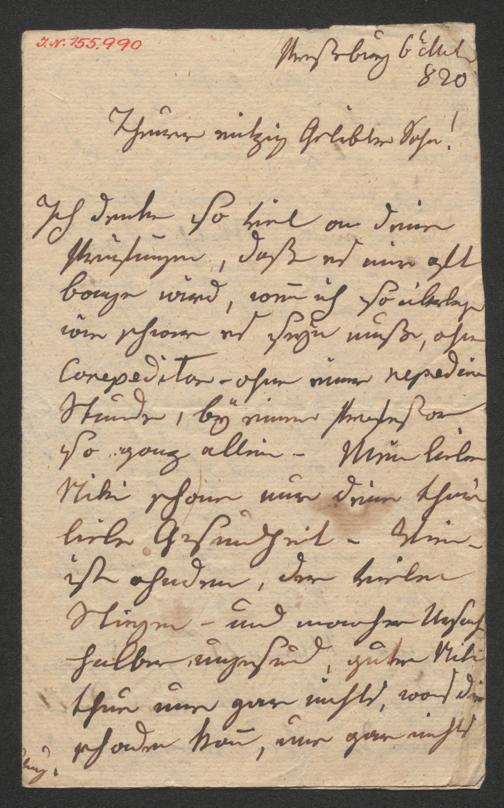 I.N. 155.990
Pressburg 6t
820
Theurer einzig Geliebter Sohn!
Ich denke so viel an deine
Prüfungen, daß es mir oft
bange wird, wen̄ ich so überlege
wie schwer es seyn muß, ohne
Corepeditor - ohne einer repedier
Stunde, bey einem Professor
so ganz allein - Mein lieber
Niki schone nur deine theure
liebe Gesundheit - Wien
ist ohndem, der vielen
Stiegen - und mancher Ursach
halber ungesund, guter Niki
thue nur gar nichts, was dir
schaden kan̄, nur gar nichts